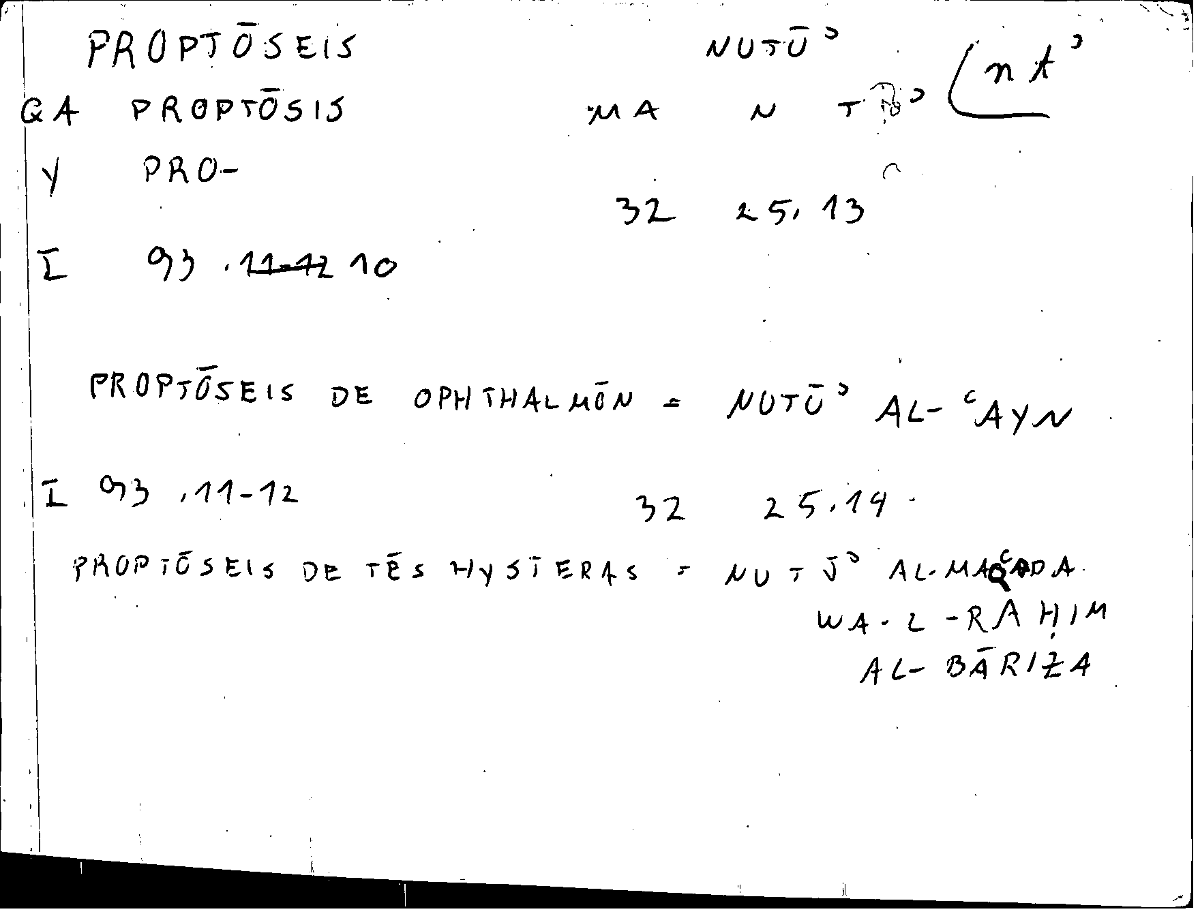 PROPTŌSEIS NUTŪʾ (ntʾ
GA PROPTŌSIS MA N T ʾ
Y PRO-
32 25.13
I 93 .11-12 10
PROPTŌSEIS DE OPHTHALMŌN = NUTŪʾ AL-ʿAYN
I 93 .11-12 32 25.14
PROPTŌSEIS DE TĒS HYSTERAS = NUTŪʾ AL-MAQʿADA
WA-L-RAḤIM
AL-BĀRIZA